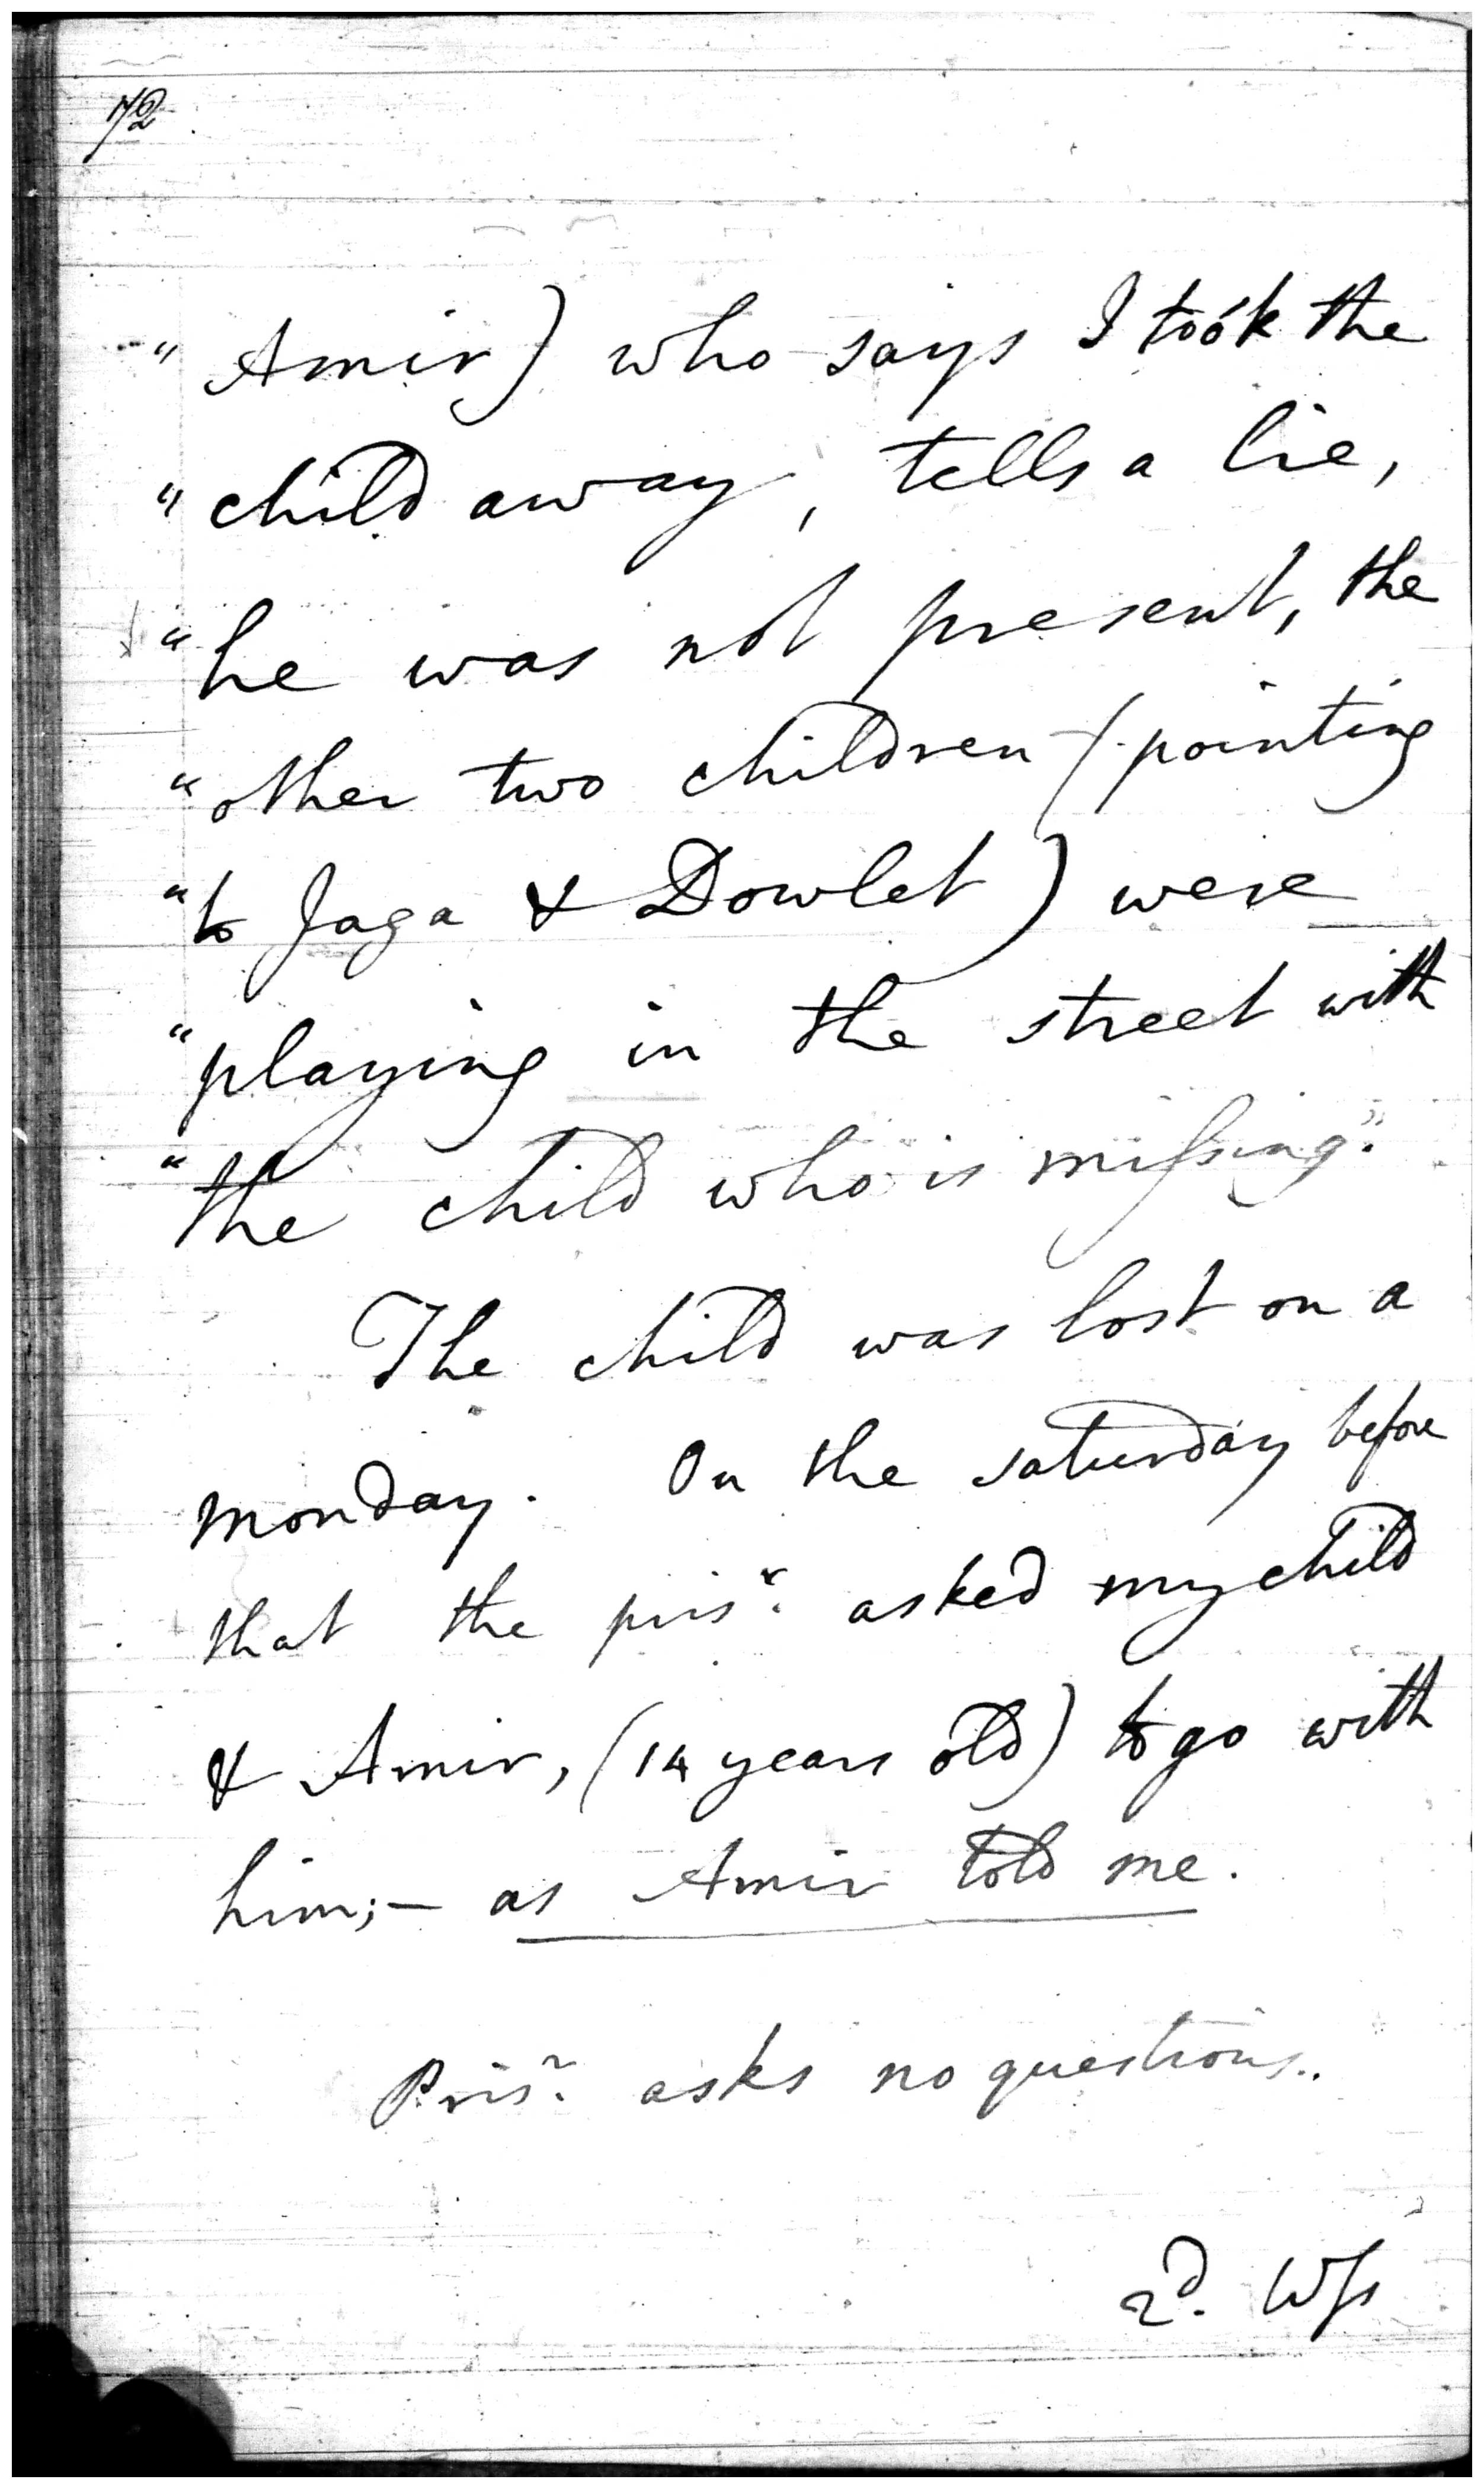 72
" Amir) who says I took the
" child away, tells a lie,
" he was not present, the
" other two children (pointing
" to Jaga & Dowlet) were
" playing in the street with
" the child who is missing."
The child was lost on a
monday. On the saturday before
that the prisr. asked my child
& Amir, (14 years old) to go with
him;— as Amir told me.
Prisr. asks no questions..
2d. Wss